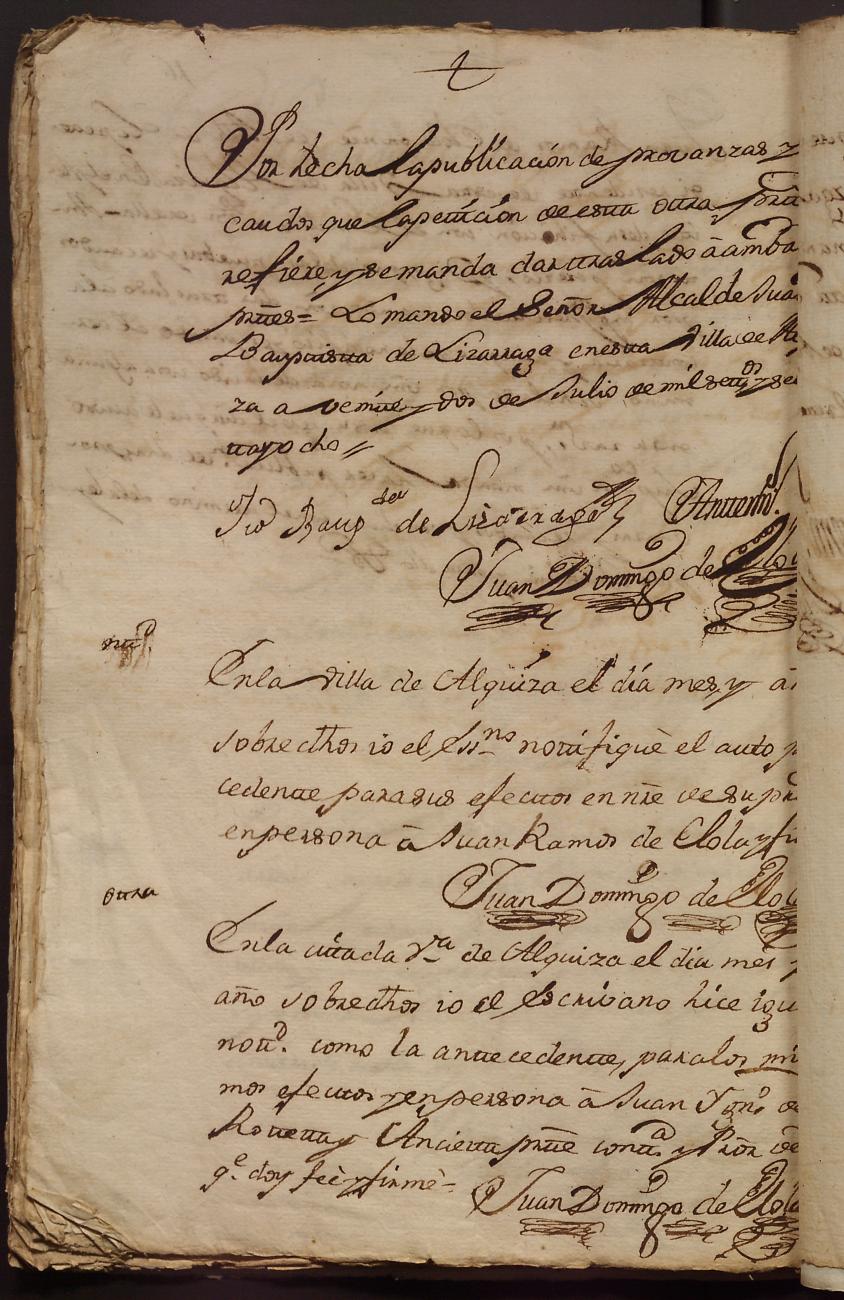 Por hecha la publicación de provanzas y
caudos que la petición de esta otra parte
refiere, y se manda dar traslado â amba
prtes = Lo mando el Señor Alcalde Juan
Bauptista de Lizarraga en esta Villa de Al
za a veinte y dos de Julio de mil settos y se
ta y ocho //
Jvo Baupta de Lizarraga Antemi.
Juan Domingo de Elo
notd.
En la villa de Alquiza el día mes, y añ
sobredhos io el Essno notifiquè el auto p
cedente para sus efectos en nre de su pte
en persona â Juan Ramos de Elola y fi
Juan Domingo de Elo
otra
En la citada Va de Alquiza el dia mes y
año sobredhos io el Escrivano hice igu
nottd. como la antecedente, para los mi
mos efectos y en persona â Juan Ygno de
Roteta y Ancieta prte conta y Pror de
qe doy feè y firmè =
Juan Domingo de Elola